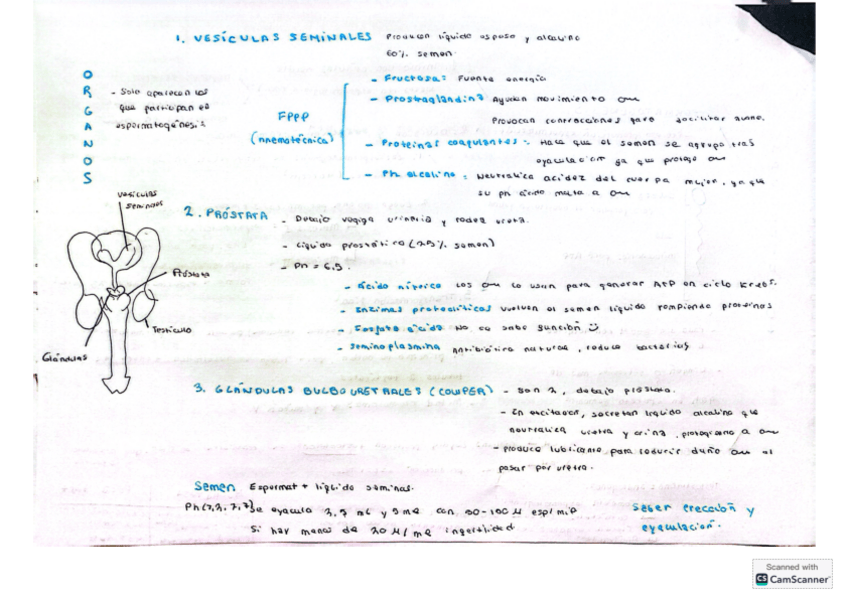 1. VESÍCULAS SEMINALES Producen líquido espeso y alcalino
60% semen.
ORGANOS
- Solo aparecen los
que participan en
espermatogénesis
FPPP
(nnemotécnica)
- Fructosa: Fuente energía
- Prostaglandina Ayudan movimiento
Provocan contracciones para facilitar
- Proteínas coagulantes: Hace que el semen se agrupe tras
eyaculación ya que protege
- Ph alcalino: Neutraliza acidez del cuerpo mujer, ya que
su ph ácido mata a
vesículas
seminales
Próstata
Testículo
Glándulas
2. PRÓSTATA - Debajo vegiga urinaria y rodea uretra.
- Líquido prostático (25% semen)
- PH = 6,5.
- Ácido Los lo usan para generar ATP en ciclo Krebs.
- Enzimas proteolíticas vuelven el semen líquido rompiendo proteínas
- Fosfato ácido No se sabe función
- Seminoplasmina antibiótico natural, reduce bacterias
3. GLÁNDULAS BULBOURETRALES (COWPER) - Son 2, debajo próstata.
- En secretan líquido alcalino que
neutraliza uretra y orina, protegiendo a
- produce lubricante para reducir daño al
pasar por uretra.
Semen Espermat + líquido seminas.
Ph(7,2, 7,7) Se eyacula y 5 mL con 50-100 M esp/mL
Si hay menos de 20 M/mL infertilidad
Saber erección y
eyaculación.
Scanned with
CS CamScanner